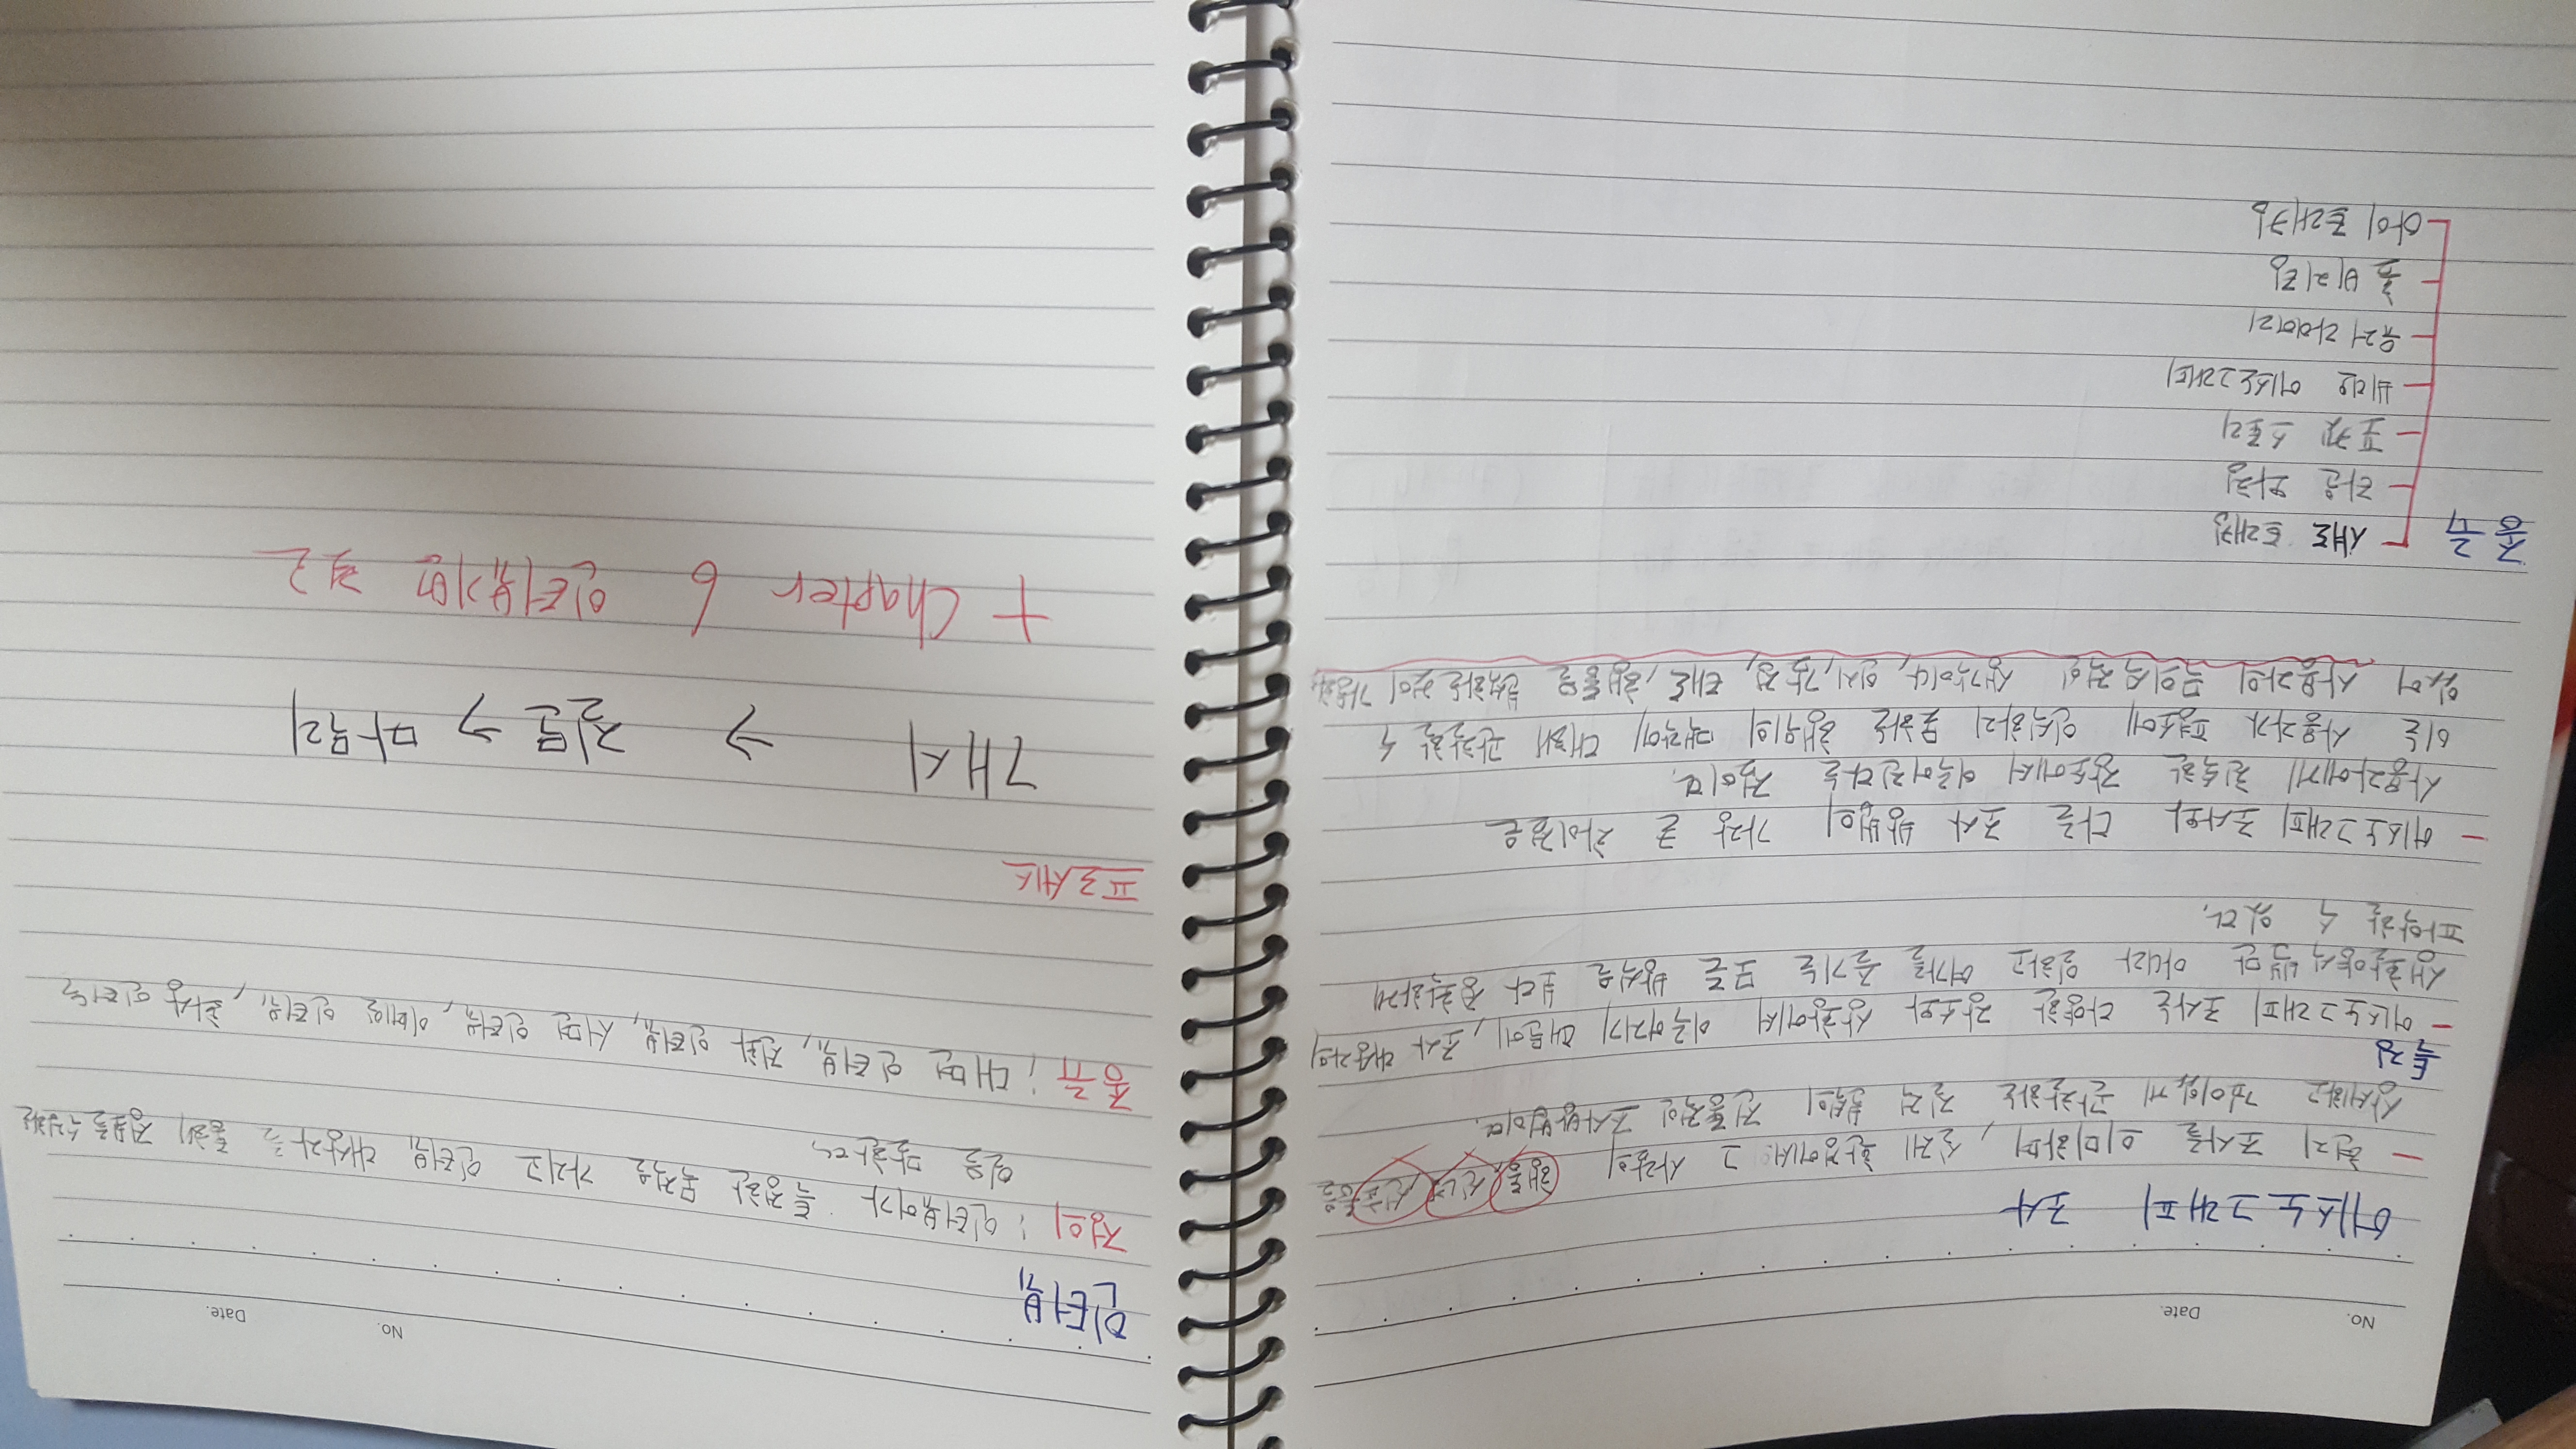 No. Date.
에스노그래피 조사
- 현지 조사를 의미하며, 실제 환경에서 그 사람의 행동, 신념, 선호등을
상세하고 깊이있게 관찰하는 질적 분석의 전통적인 조사방법이다.
특징
- 에스노그래피 조사는 다양한 장소와 상황에서 이루어지기 때문에, 조사 대상자의
생활양식 뿐만 아니라 일하고 여가를 즐기는 모든 방식을 보다 정확하게
파악할 수 있다.
- 에스노그래피 조사와 다른 조사 방법의 가장 큰 차이점은
사용자에게 친숙한 장소에서 이루어진다는 점이다.
이는 사용자가 평소에 인식하지 못하는 행위의 맥락에 대해 관찰할 수
있어 사용자의 무의식적인 생각이나, 인지, 감정, 태도, 행동을 분석하는 것이
종류
섀도 트래킹
타운 와칭
포켓 스토리
비디오 에스노그래피
유저 다이어리
홈 비지팅
아이 트래킹
No. Date.
인터뷰
정의 : 인터뷰어가 특정한 목적을 가지고 인터뷰 대상자를 통해 정보를 수집하는
일을 말한다.
종류 ; 대면 인터뷰, 전화 인터뷰, 서면 인터뷰, 이메일 인터뷰, 화상 인터뷰
프로세스
개시 → 질문 → 마무리
+ Chapter 6 인터뷰기법 참고